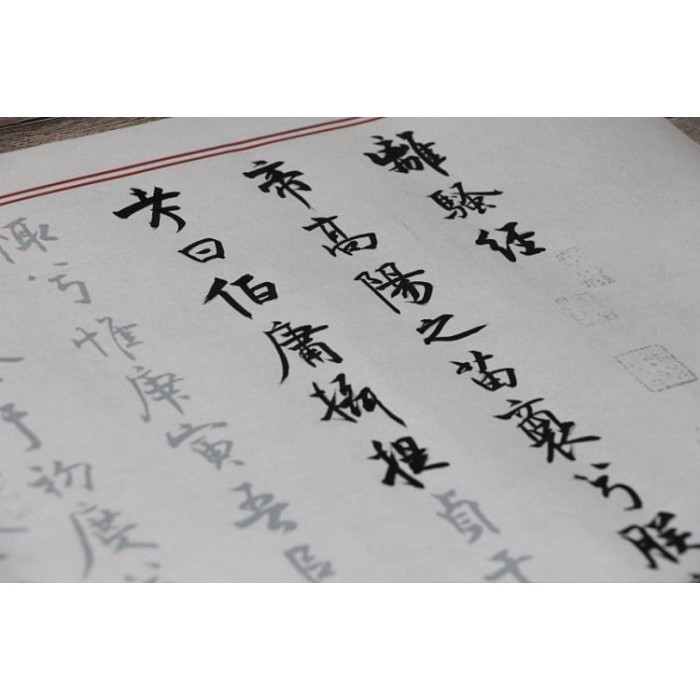 離騷經
帝高陽之苗裔兮朕
考曰伯庸攝提貞于
陬兮惟庚寅吾㠯
于初度